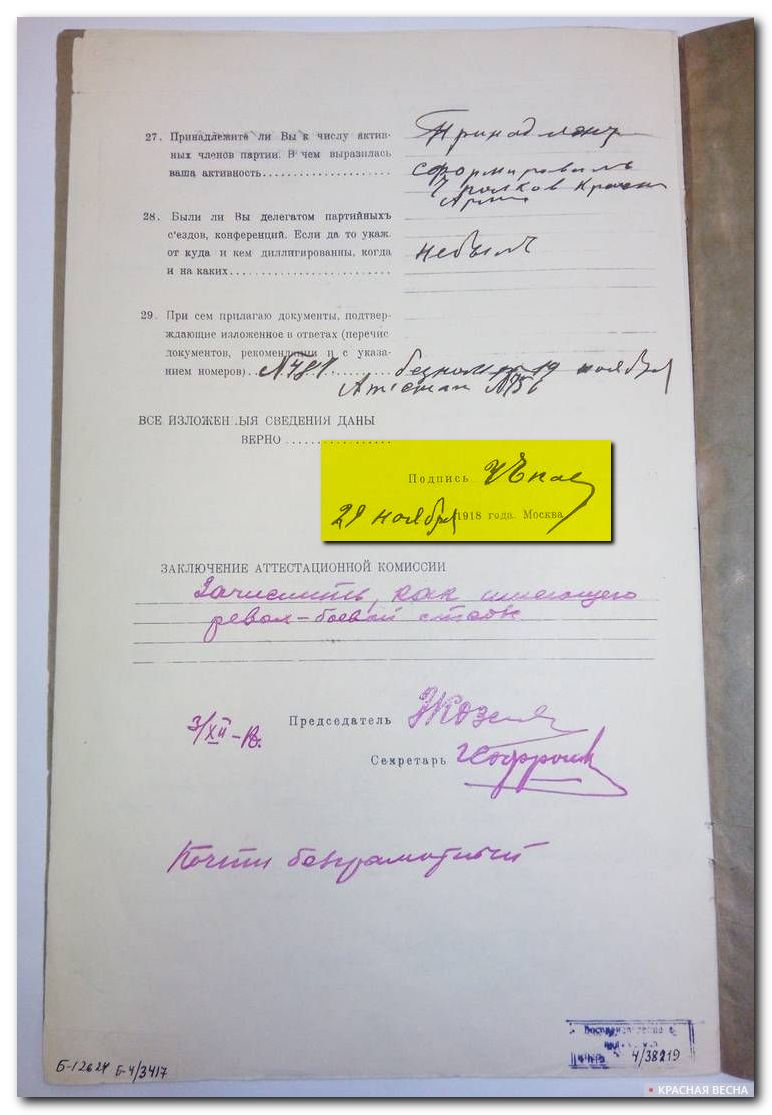 27. Принадлежите ли Вы к числу актив-
ных членов партии. В чем выразилась
ваша активность......................
Принадлежу
сформировалъ
7 полков Красн
Арми
28. Были ли Вы делегатом партийныхъ
с'ездов, конференций. Если да то укаж.
от куда и кем диллигированы, когда
и на каких...........................
небылъ
29. При сем прилагаю документы, подтвер-
ждающие изложенное в ответах (перечис
документов, рекомендации и с указа-
нием номеров).
№481 19 ноября
Атестат
ВСЕ ИЗЛОЖЕН ЫЯ СВЕДЕНИЯ ДАНЫ
ВЕРНО ..................
Подпись
ноября 1918 года. Москва
ЗАКЛЮЧЕНИЕ АТТЕСТАЦИОННОЙ КОМИССИИ
Зачислить, как имеющего
револ-боевой стаж
3/XII-18. Председатель
Секретарь
Почти безграмотный
4/38219
Б-12624 Б-4/3417
КРАСНАЯ ВЕСНА